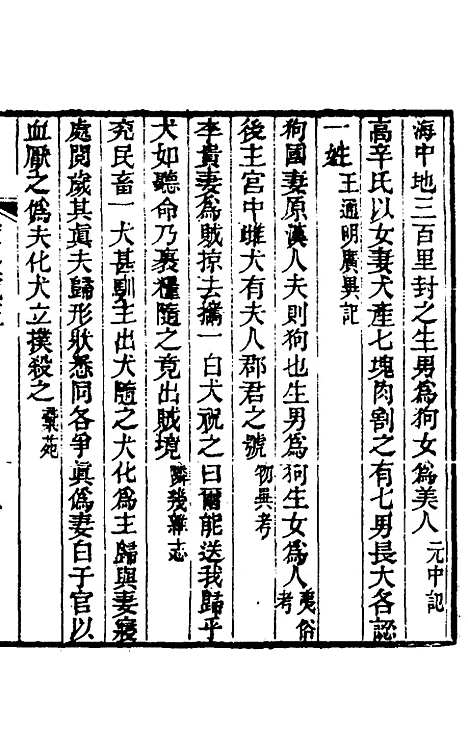 海中地三百里封之生男爲狗女爲美人元中記
高辛氏以女妻犬產七塊肉割之有七男長大各認
一姓王通明廣異記
狗國妻原漢人夫則狗也生男爲狗生女爲人夷俗考
後主宮中雌犬有夫人郡君之號物異考
李貴妻爲賊掠去攜一白犬祝之曰爾能送我歸乎
犬如聽命乃裹糧隨之竟出賊境隣幾雜志
兖民畜一犬甚馴主出犬隨之犬化爲主歸與妻寢
處閱歲其眞夫歸形狀悉同各爭眞僞妻白于官以
血厭之僞夫化犬立撲殺之